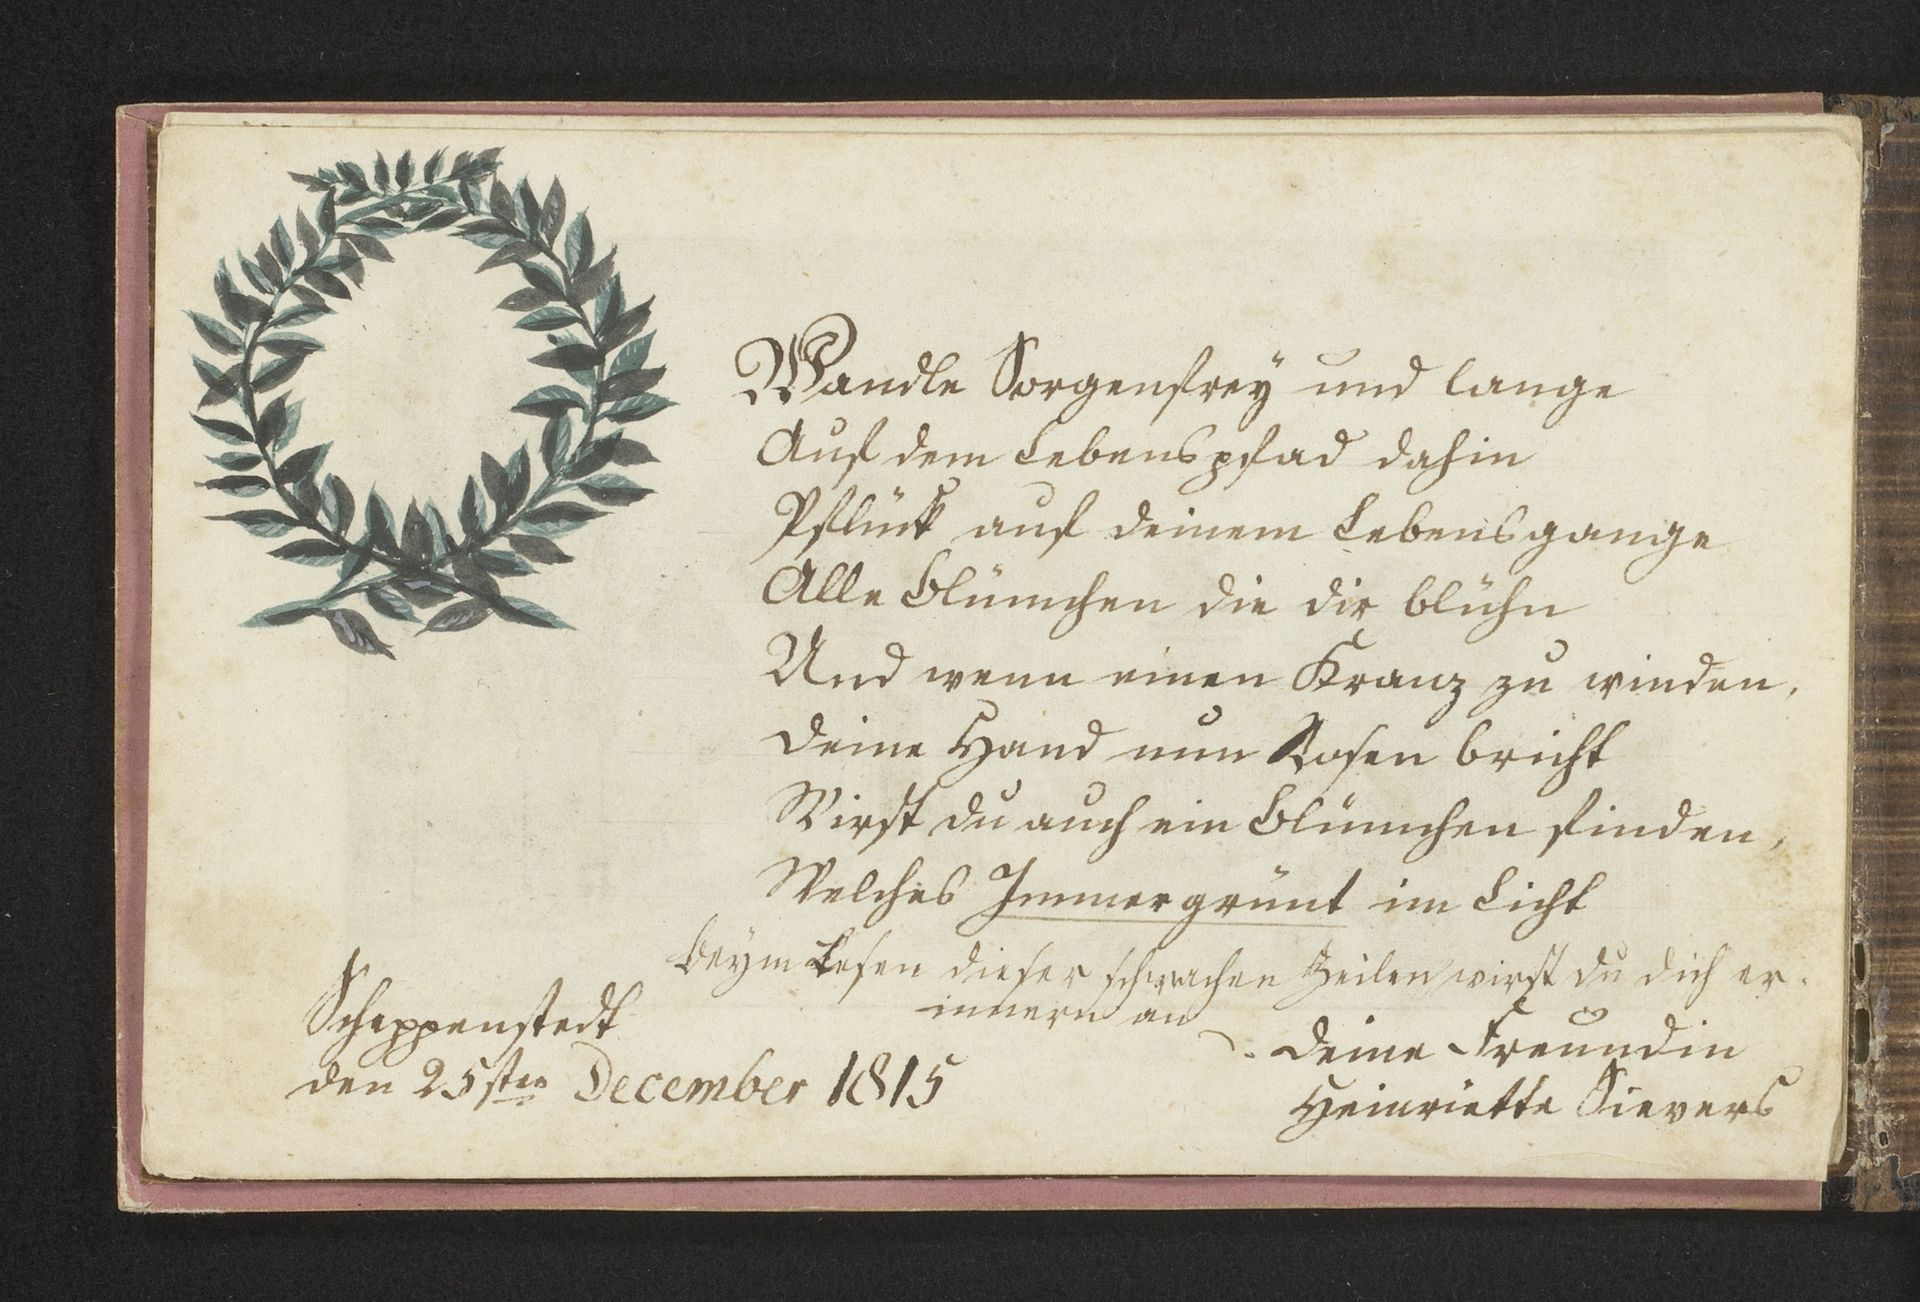 Wandle Sorgenfrey und lange
Auf dem Lebenspfad dahin
Pflück auf deinem Lebensgange
Alle Blümchen die dir blühn
Und wenn einen Kranz zu winden,
deine Hand nun Rosen bricht
Wirst du auch ein Blümchen finden,
Welches Immergrünt im Licht
beym Lesen dieser schwachen Zeilen wirst du dich er-
innern an
deine Freundin
Henriette Sievers
Scheppenstedt
den 25sten December 1815